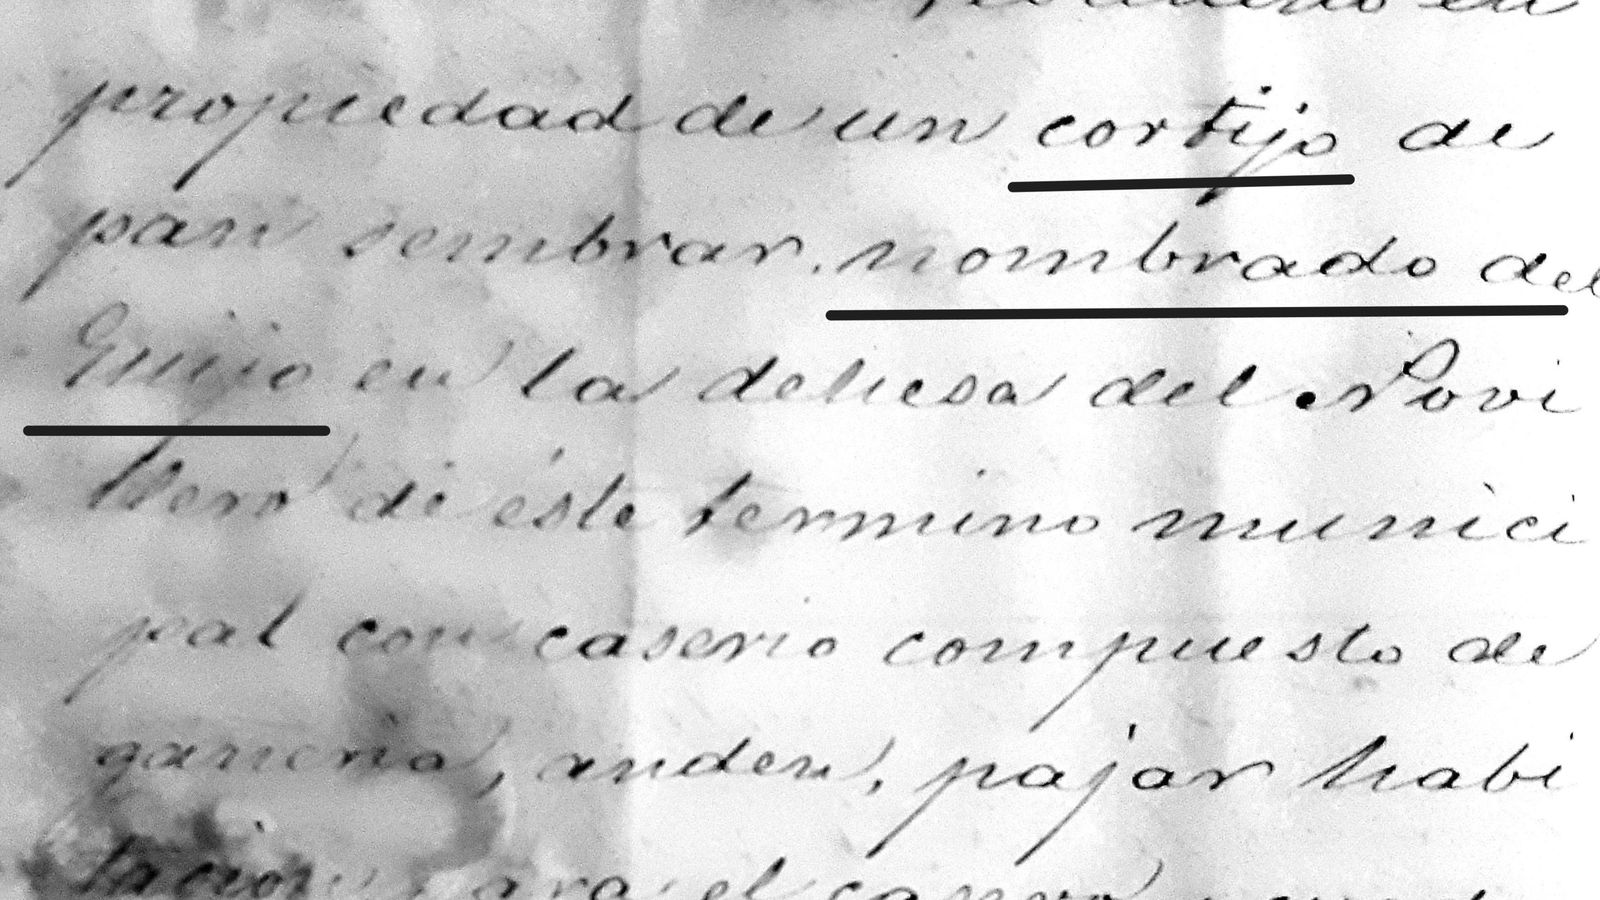 en
propiedad de un cortijo de
pan sembrar, nombrado del
Guijo en la dehesa del Novi
llero de éste termino munici
pal con caserio compuesto de
gañania, anden, pajar habi
tacion para el casero